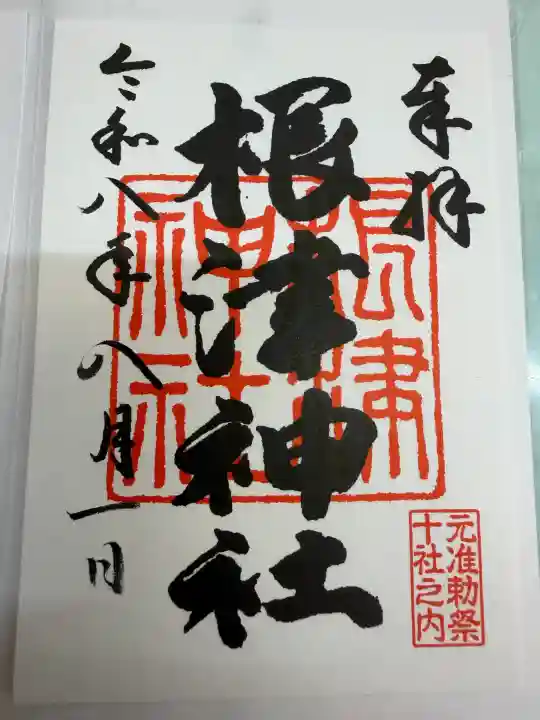 奉拝
根津神社
令和八年八月一日
根津
神社
元准勅祭
十社之内